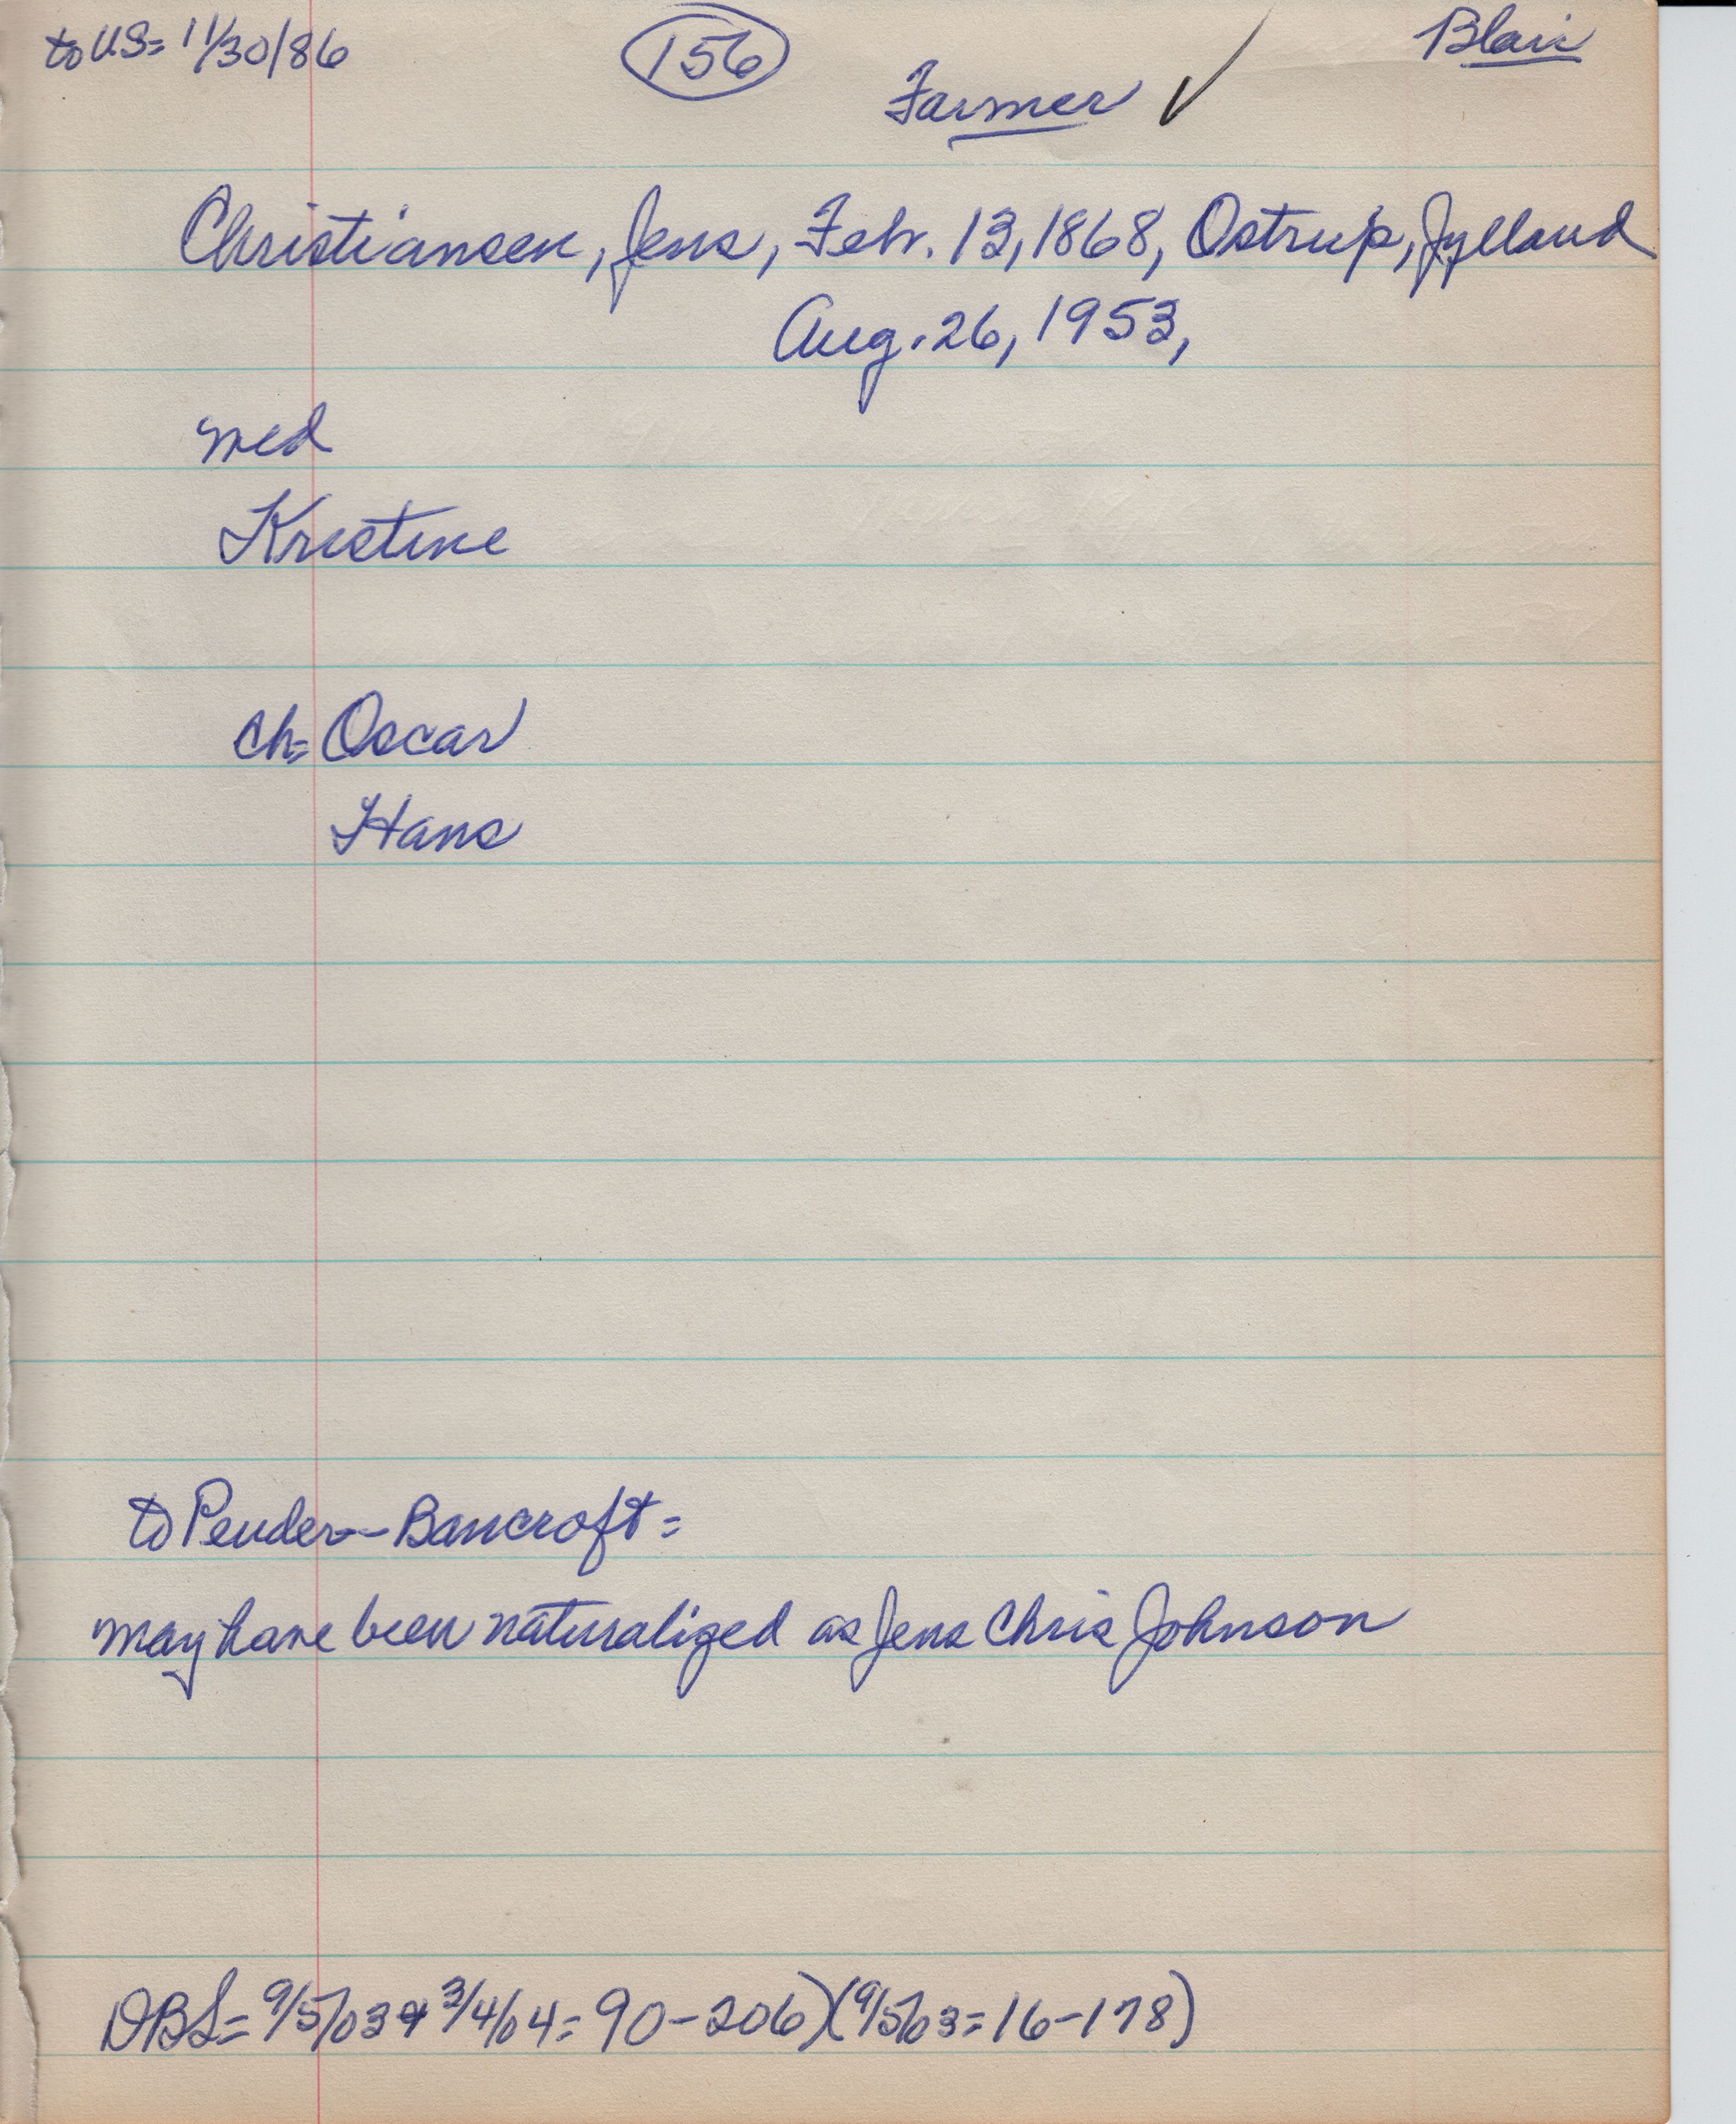 to US= 11/30/86
156
Blair
Farmer ✓
Christiansen, Jens, Feb. 13, 1868, Ostrup, Jylland
Aug. 26, 1953,
med
Kristine
ch= Oscar
Hans
to Pender--Bancroft=
may have been naturalized as Jens Chris Johnson
DBS= 9/5/03 & 3/4/04= 90-206)(9/5/03=16-178)